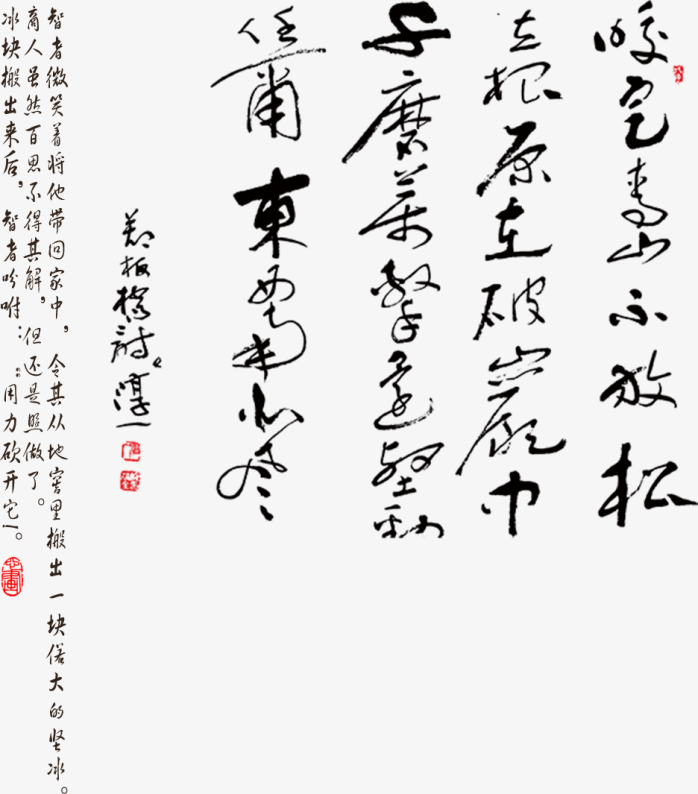 咬定青山不放松
立根原在破巖中
千磨萬擊還堅勁
任爾東西南北風
鄭板橋詩 淳一
智者微笑着将他带回家中，令其从地窖里搬出一块偌大的坚冰。
商人虽然百思不得其解，但还是照做了。
冰块搬出来后，智者吩咐：“用力砍开它!。